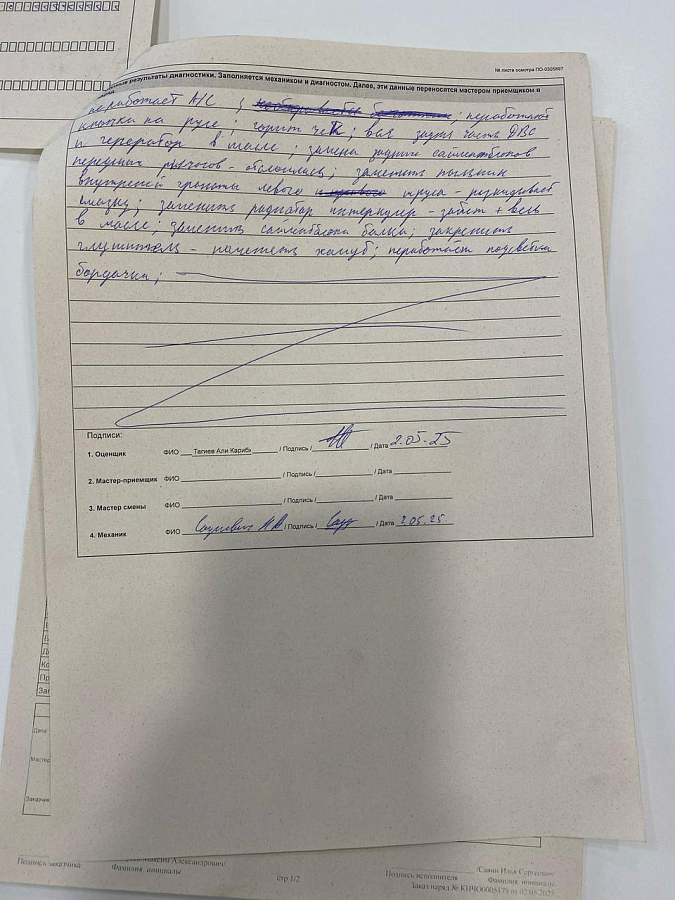 № листа осмотра ПО-0305897
результаты диагностики. Заполняется механиком и диагностом. Далее, эти данные переносятся мастером приемщиком в
неработает A/C ; ; неработают
кнопки на руле ; горит чек ; вся задняя часть ДВС
и генератор в масле ; замена задних сайлентблоков
передних рычагов - оболомились ; заменить пыльник
внутренней гранаты левого - раскидывает
смазку ; заменить радиатор интеркулер - забит + весь
в масле ; заменить сайлентблоки балки ; закрепить
глушитель - хомут ; неработает подсветка
бардачка ;
Подписи:
1. Оценщик ФИО Тагиев Али Карибх / Подпись / / Дата 2.05.25
2. Мастер-приемщик ФИО / Подпись / / Дата
3. Мастер смены ФИО / Подпись / / Дата
4. Механик ФИО / Подпись / / Дата 2.05.25.
Дата
Мастер
Заказчик
Подпись заказчика Александрович/
Фамилия инициалы
стр.1/2
Подпись исполнителя /Савин Илья Сергеевич/
Фамилия инициалы
Заказ наряд № КНЧО0005179 от 02.05.2025